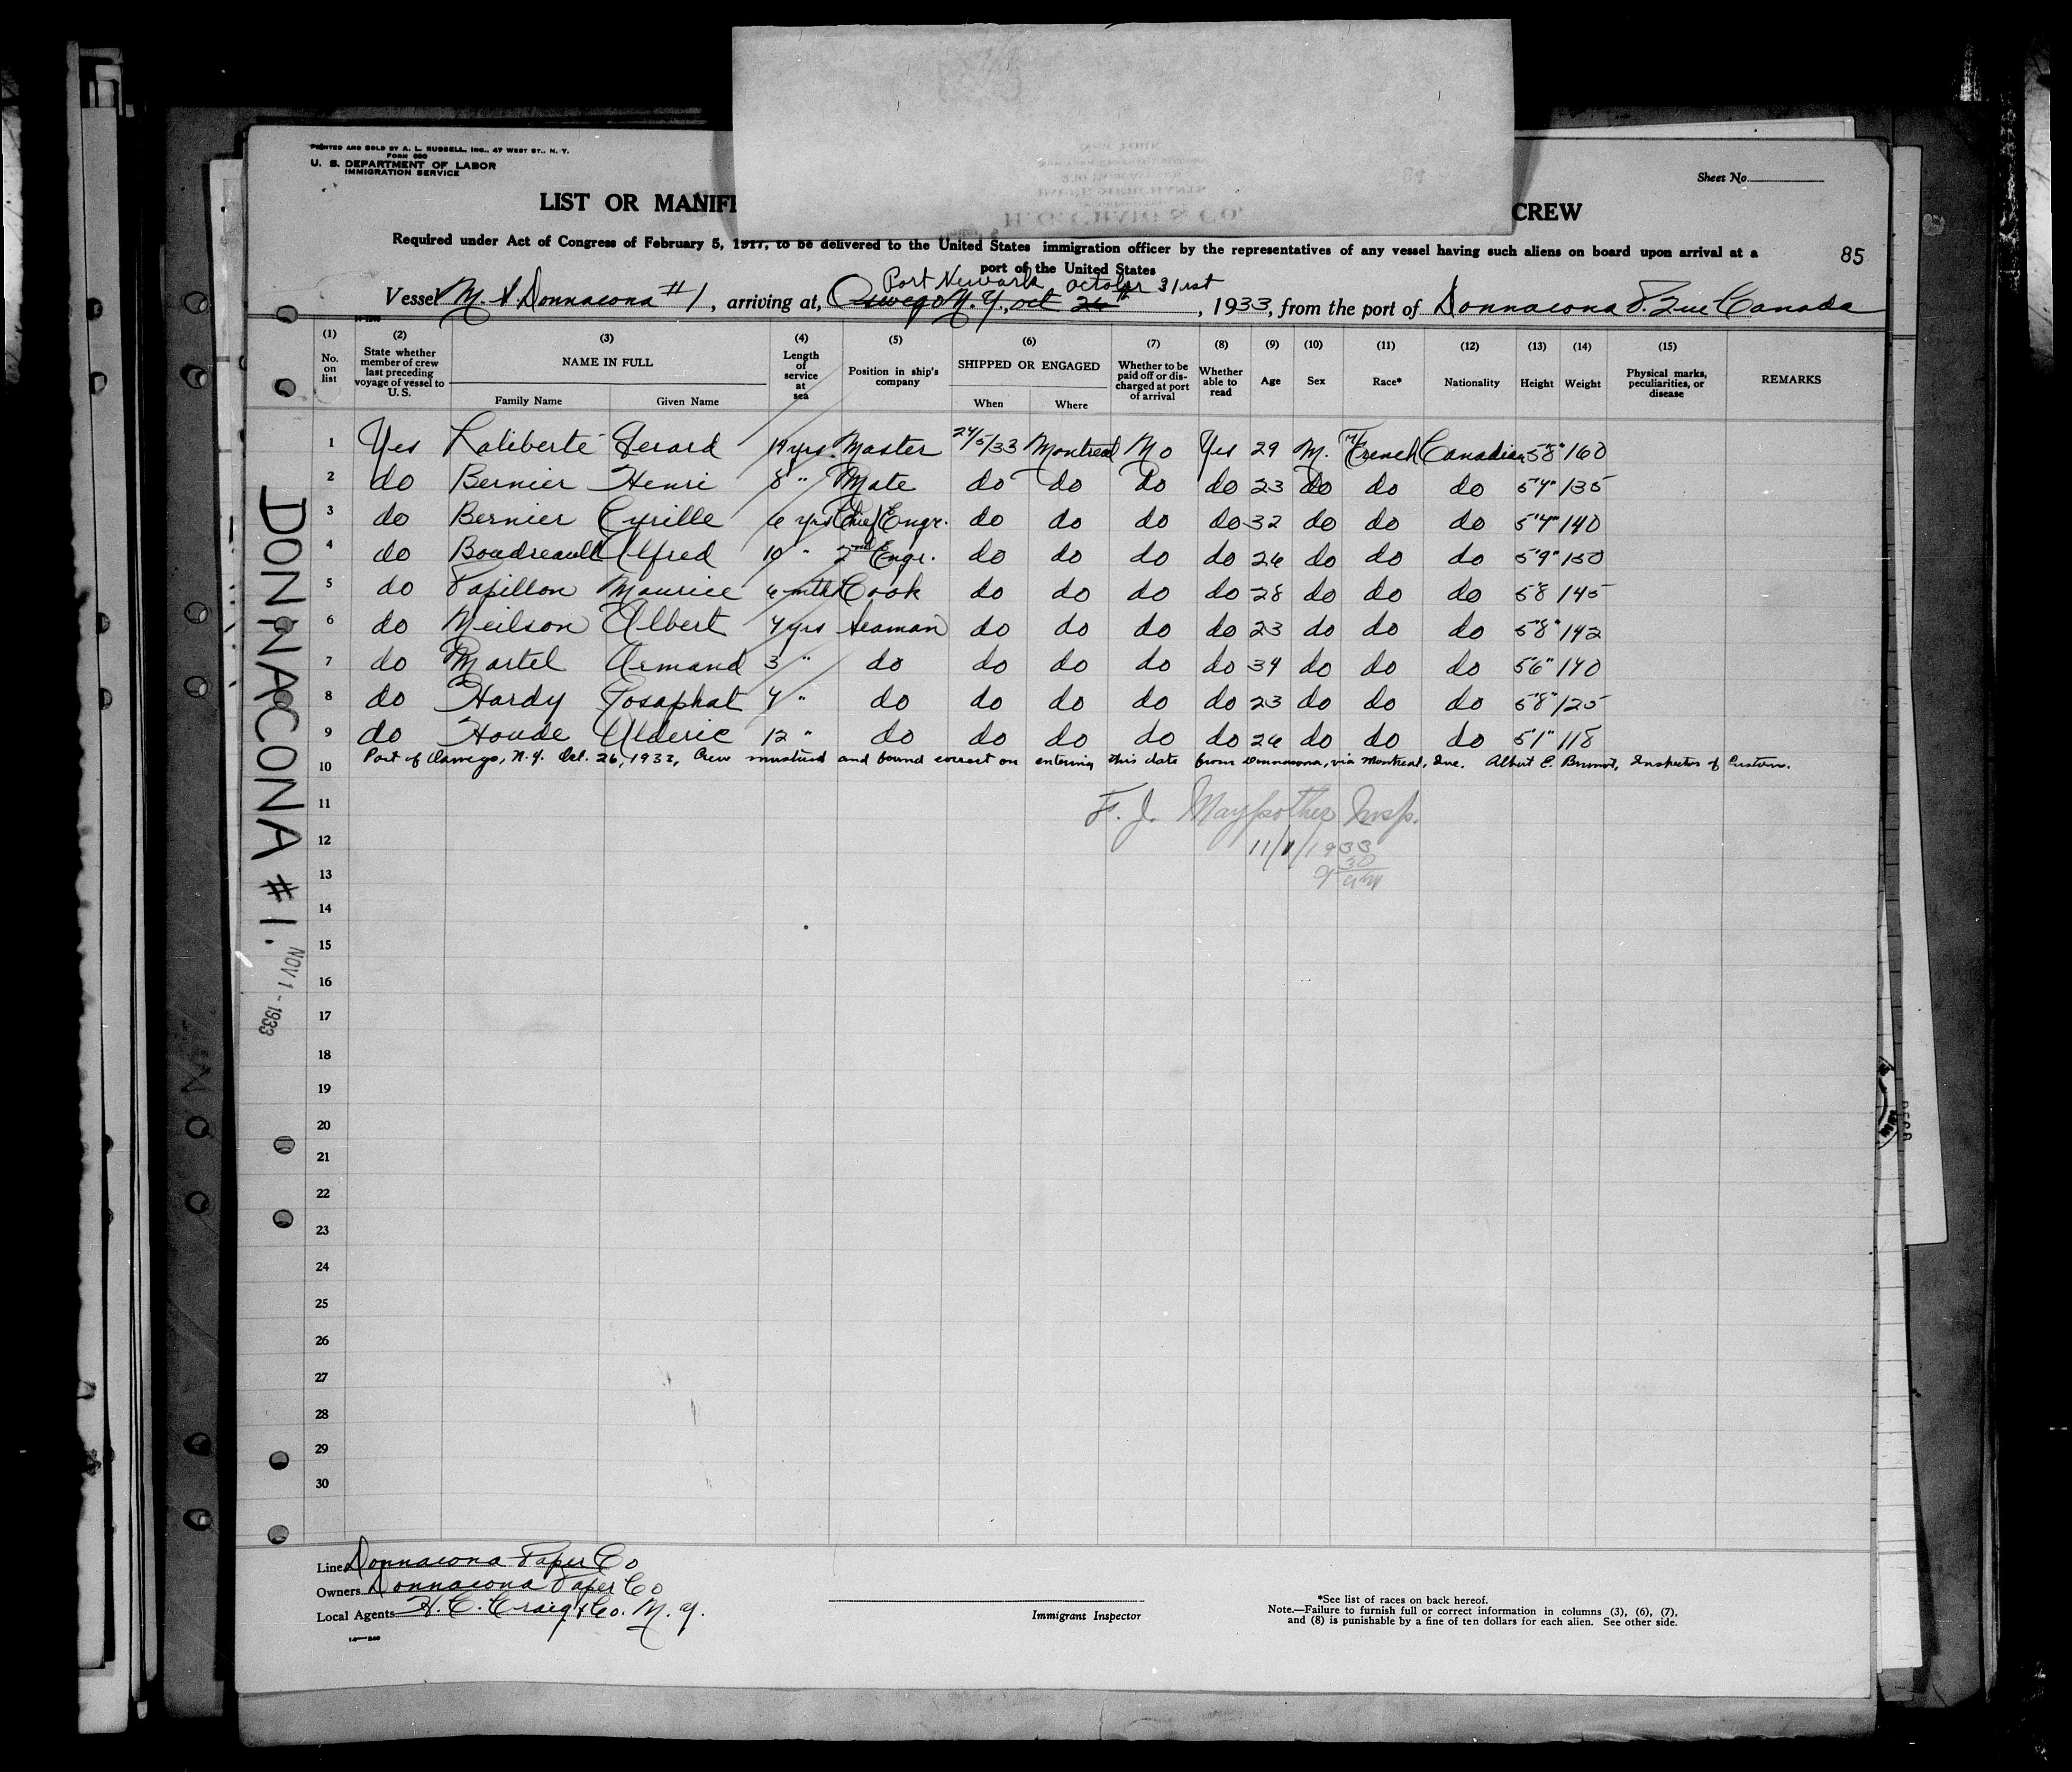 PRINTED AND SOLD BY A. L. RUSSELL, INC., 47 WEST ST., N. Y.
FORM 680
U. S. DEPARTMENT OF LABOR
IMMIGRATION SERVICE
Sheet No.
LIST OR MANIF CREW
Required under Act of Congress of February 5, 1917, to be delivered to the United States immigration officer by the representatives of any vessel having such aliens on board upon arrival at a
port of the United States
85
Port Newark October 31rst
Vessel M. V. Donnacona #1, arriving at, Oswego N. Y., Oct 26th, 1933, from the port of Donnacona P. Que Canada
(1) (2) (3) (4) (5) (6) (7) (8) (9) (10) (11) (12) (13) (14) (15)
No. on list State whether member of crew last preceding voyage of vessel to U. S. NAME IN FULL Length of service at sea Position in ship's company SHIPPED OR ENGAGED Whether to be paid off or discharged at port of arrival Whether able to read Age Sex Race* Nationality Height Weight Physical marks, peculiarities, or disease REMARKS
Family Name Given Name When Where
1 Yes Laliberte Gerard 14 yrs. Master 24/5/33 Montreal No Yes 29 M. French Canadian 5'8" 160
2 do Bernier Henri 8 " Mate do do do do 23 do do do 5'4" 135
3 do Bernier Cyrille 6 yrs Chief Engr. do do do do 32 do do do 5'4" 140
4 do Boudreault Alfred 10 " 2nd Engr. do do do do 26 do do do 5'9" 150
5 do Papillon Maurice 6 mths Cook do do do do 28 do do do 5 8 145
6 do Neilson Albert 4 yrs Seaman do do do do 23 do do do 5'8" 142
7 do Martel Armand 3 " do do do do do 34 do do do 5'6" 140
8 do Hardy Josaphat 4 " do do do do do 23 do do do 5'8" 125
9 do Houde Alderic 12 " do do do do do 26 do do do 5'1" 118
Port of Oswego, N.Y. Oct. 26, 1933, Crew mustered and found correct on entering this date from Donnacona, via Montreal, Que. Albert E. Inspector of Customs.
10
11
F. J. Maypother Insp.
12
11/1/1933
13
9 30 am
14
15
16
17
18
19
20
21
22
23
24
25
26
27
28
29
30
DONNACONA #1.
NOV 1 - 1933
Line Donnacona Paper Co
Owners Donnacona Paper Co
Local Agents H. C. Craig & Co. N. Y.
Immigrant Inspector
*See list of races on back hereof.
Note.—Failure to furnish full or correct information in columns (3), (6), (7),
and (8) is punishable by a fine of ten dollars for each alien. See other side.